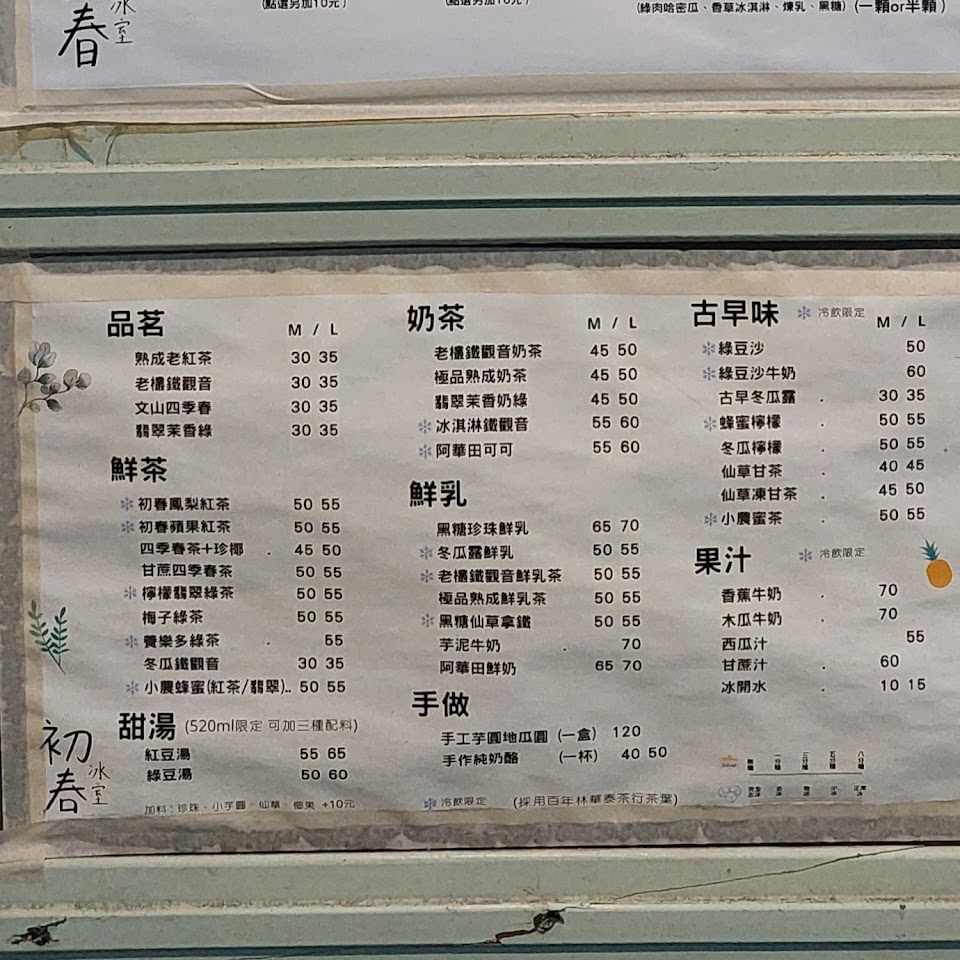 (點選另加10元)
(點選另加10元)
(綠肉哈密瓜、香草冰淇淋、煉乳、黑糖) (一顆or半顆)
春 冰室
品茗 M / L
熟成老紅茶 30 35
老欉鐵觀音 30 35
文山四季春 30 35
翡翠茉香綠 30 35
鮮茶
初春鳳梨紅茶 50 55
初春蘋果紅茶 50 55
四季春茶+珍椰 . 45 50
甘蔗四季春茶 50 55
檸檬翡翠綠茶 50 55
梅子綠茶 50 55
養樂多綠茶 . 55
冬瓜鐵觀音 30 35
小農蜂蜜(紅茶/翡翠).. 50 55
甜湯 (520ml限定 可加三種配料)
紅豆湯 55 65
綠豆湯 50 60
加料：珍珠、小芋圓、仙草、椰果 +10元
初春 冰室
奶茶 M / L
老欉鐵觀音奶茶 45 50
極品熟成奶茶 45 50
翡翠茉香奶綠 45 50
冰淇淋鐵觀音 55 60
阿華田可可 55 60
鮮乳
黑糖珍珠鮮乳 65 70
冬瓜露鮮乳 50 55
老欉鐵觀音鮮乳茶 50 55
極品熟成鮮乳茶 50 55
黑糖仙草拿鐵 50 55
芋泥牛奶 . 70
阿華田鮮奶 65 70
手做
手工芋圓地瓜圓 (一盒) 120
手作純奶酪 (一杯) 40 50
冷飲限定 (採用百年林華泰茶行茶葉)
古早味 冷飲限定 M / L
綠豆沙 50
綠豆沙牛奶 60
古早冬瓜露 . 30 35
蜂蜜檸檬 . 50 55
冬瓜檸檬 . 50 55
仙草甘茶 . 40 45
仙草凍甘茶 . 45 50
小農蜜茶 . 50 55
果汁 冷飲限定
香蕉牛奶 . 70
木瓜牛奶 . 70
西瓜汁 55
甘蔗汁 . 60
冰開水 . 10 15
無糖 一分糖 三分糖 五分糖 八分糖
去冰 微冰 少冰 正常冰